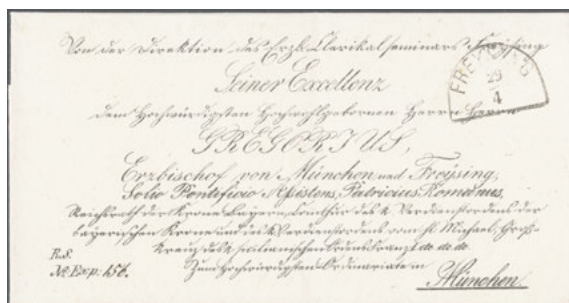 Von der Direktion des Erzb. Clerikalseminars Freising
FREYSING
29
4
Seiner Excellenz
dem Hochwürdigsten Hochwohlgebornen Herrn Herrn
GREGORIUS,
Erzbischof von München und Freysing,
Solio Pontificio Assistens, Patricius Romanus,
Reichsrath der Krone Bayern, Comthur des k. Verdienstordens der
bayerischen Krone und des k. Verdienstordens vom hl. Michael, Groß-
Kreuz des k. italianischen Ordens Franz I. de. de. de.
R.S.
Zum Hochwürdigsten Ordinariate in
No. Exp. 156.
München